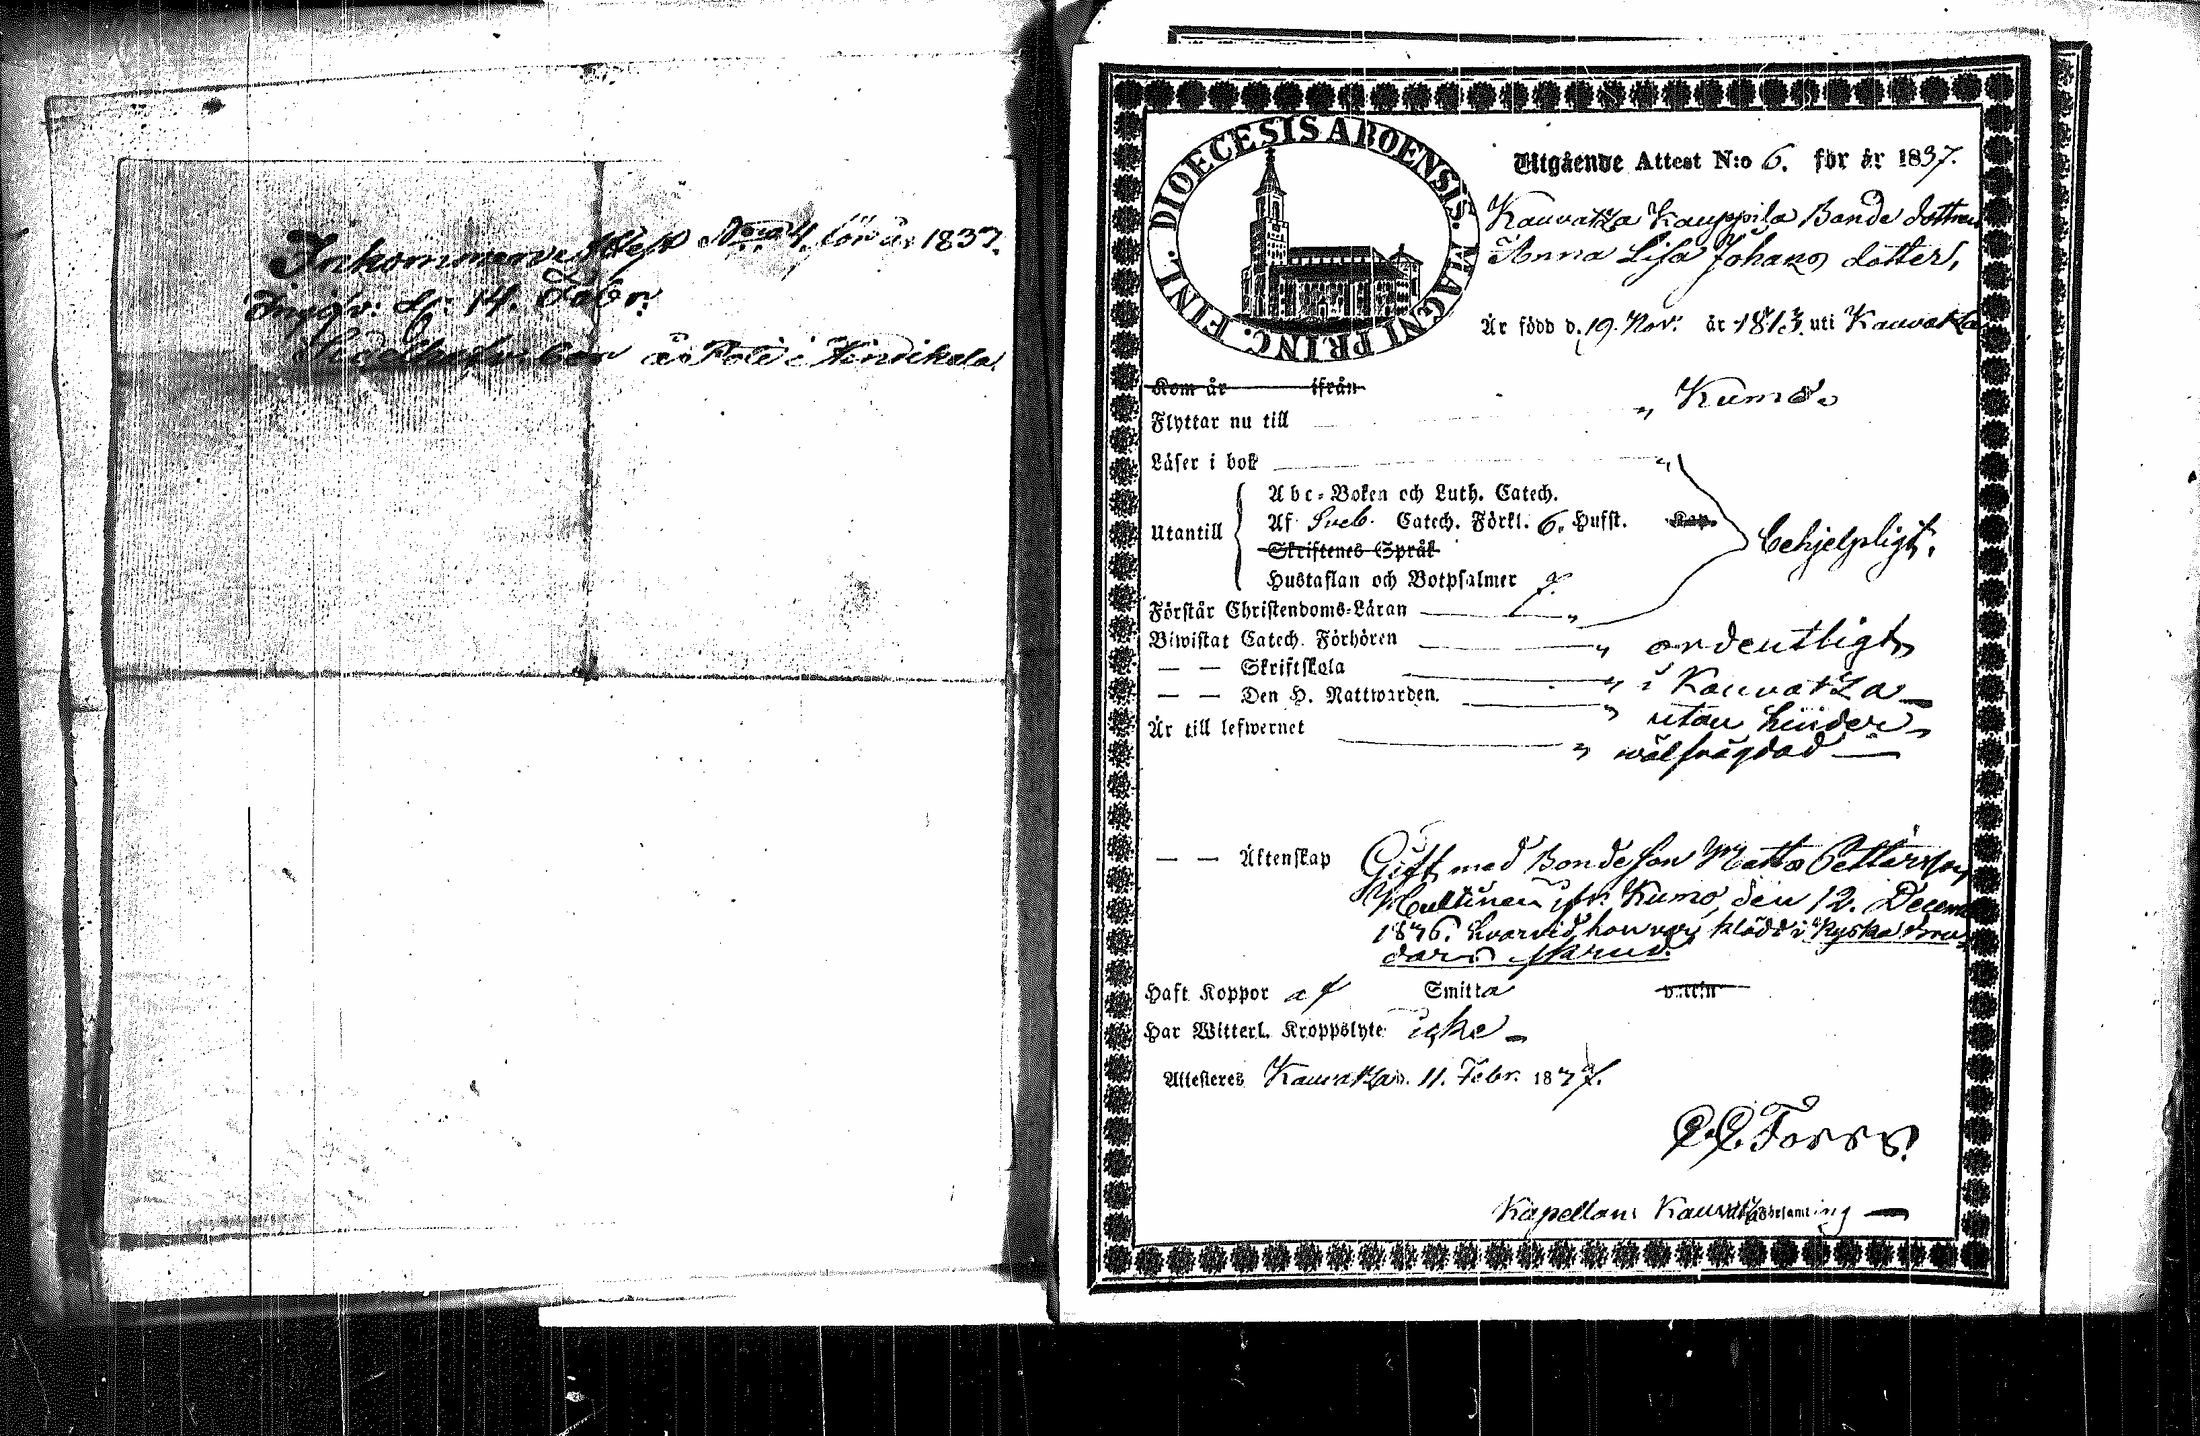 Inkommen Attest N:o 4. för år 1837.
d. 14. Febr.
i
DIOECESIS ABOENSIS. MAGNI PRINC. FINL.
Utgående Attest N:o 6. för år 1837.
Kauvatza Kauppila Bonde dottren
Anna Lisa Johans dotter,
Är född d. 19. Nov. år 1813. uti Kauvatza
Kom år ifrån
Flyttar nu till „ Kumo.
Läser i bok „
Abc-Boken och Luth. Catech.
Utantill Af Sveb. Catech. Förkl. 6. Hufst. Kap. behjelpligt.
Skriftenes Språk
Hustaflan och Botpsalmer 7.
Förstår Christendoms-Läran „
Biwistat Catech. Förhören „ ordentligt
— — Skriftskola „ i Kauvatza
— — Den H. Nattwarden. „ utan hinder
Är till lefwernet „ wälfrägdad
— — Äktenskap Gift med Bonde Son Matts Pettersson
ifr. Kumo, den 12. Decem
1836. hvarvid hon var klädd i Kyska Bru
dars skrud.
Haft Koppor af Smitta
Har Witterl. Kroppslyte icke
Attesteres Kauvatza d. 11. Febr. 1837.
Forss.
Kapellan i Kauvatza församling